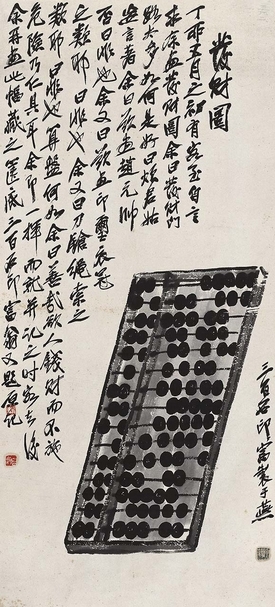 發財圖
丁亥五月之初有客至自言
求余画發財圖余曰發財門
路太多如何是好曰煩君姑
妄言者余曰欲画趙元帥
否曰非也余又曰欲画印璽衣冠
之類耶曰非也余又曰刀鎗繩索之
類耶曰非也算盤何如余曰善哉欲人錢財而不施
危險乃仁具耳余即一揮而就并記之時客去後
余再画此幅藏之篋底三百石印富翁又題原記
三百石印富製于燕